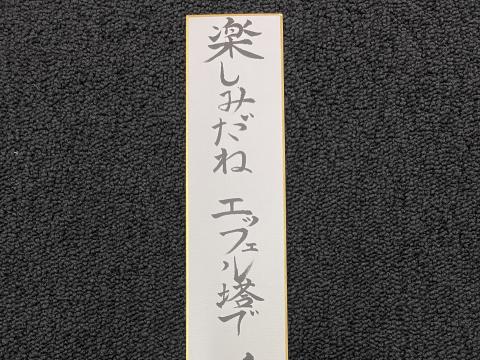 楽しみだね エッフェル塔で